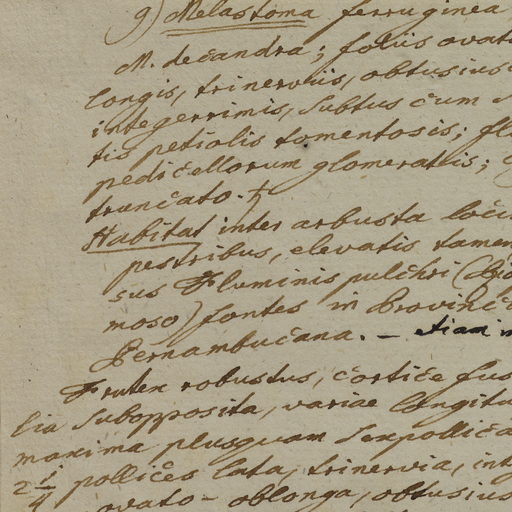 9) Melastoma ferruginea
M. decandra; foliis ovat
longis, trinerviis, obtusius
integerrimis, subtus cum
tis petiolis tomentosis; fl
pedicellorum glomeratis;
truncato. ♄
Habitat inter arbusta loci
pestribus, elevatis tamen
sus Fluminis pulchri (Rio
moso) fontes in Provinci
Pernambucana. — etiam in
Frutex robustus, cortice fus
lia subopposita, variae longitu
maxima plusquam sexpollica
2 1/4 pollices lata, trinervia, int
ovato-oblonga, obtusius